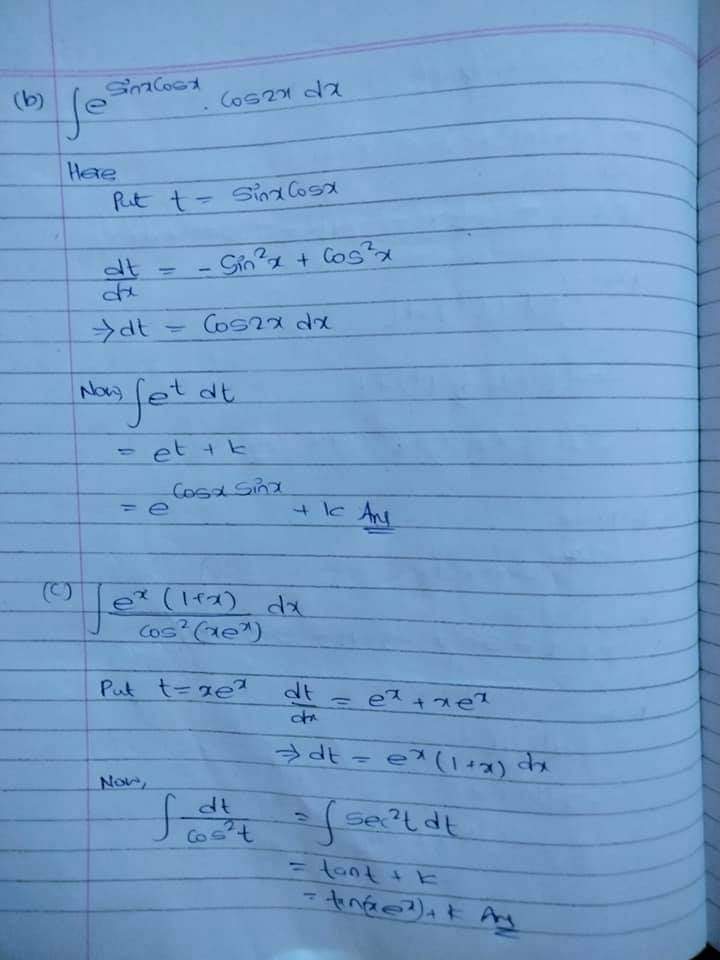 (b) ∫e^(sinx cosx) . cos2x dx
Here
Put t = sinx cosx
dt/dx = - sin²x + cos²x
⇒ dt = cos2x dx
Now, ∫e^t dt
= et + k
= e^(cosx sinx) + k Ans
(c) ∫ e^x (1+x) / cos²(xe^x) dx
Put t = xe^x dt/dx = e^x + xe^x
⇒ dt = e^x (1+x) dx
Now,
∫ dt / cos²t = ∫ sec²t dt
= tant + k
= tan(xe^x) + k Ans